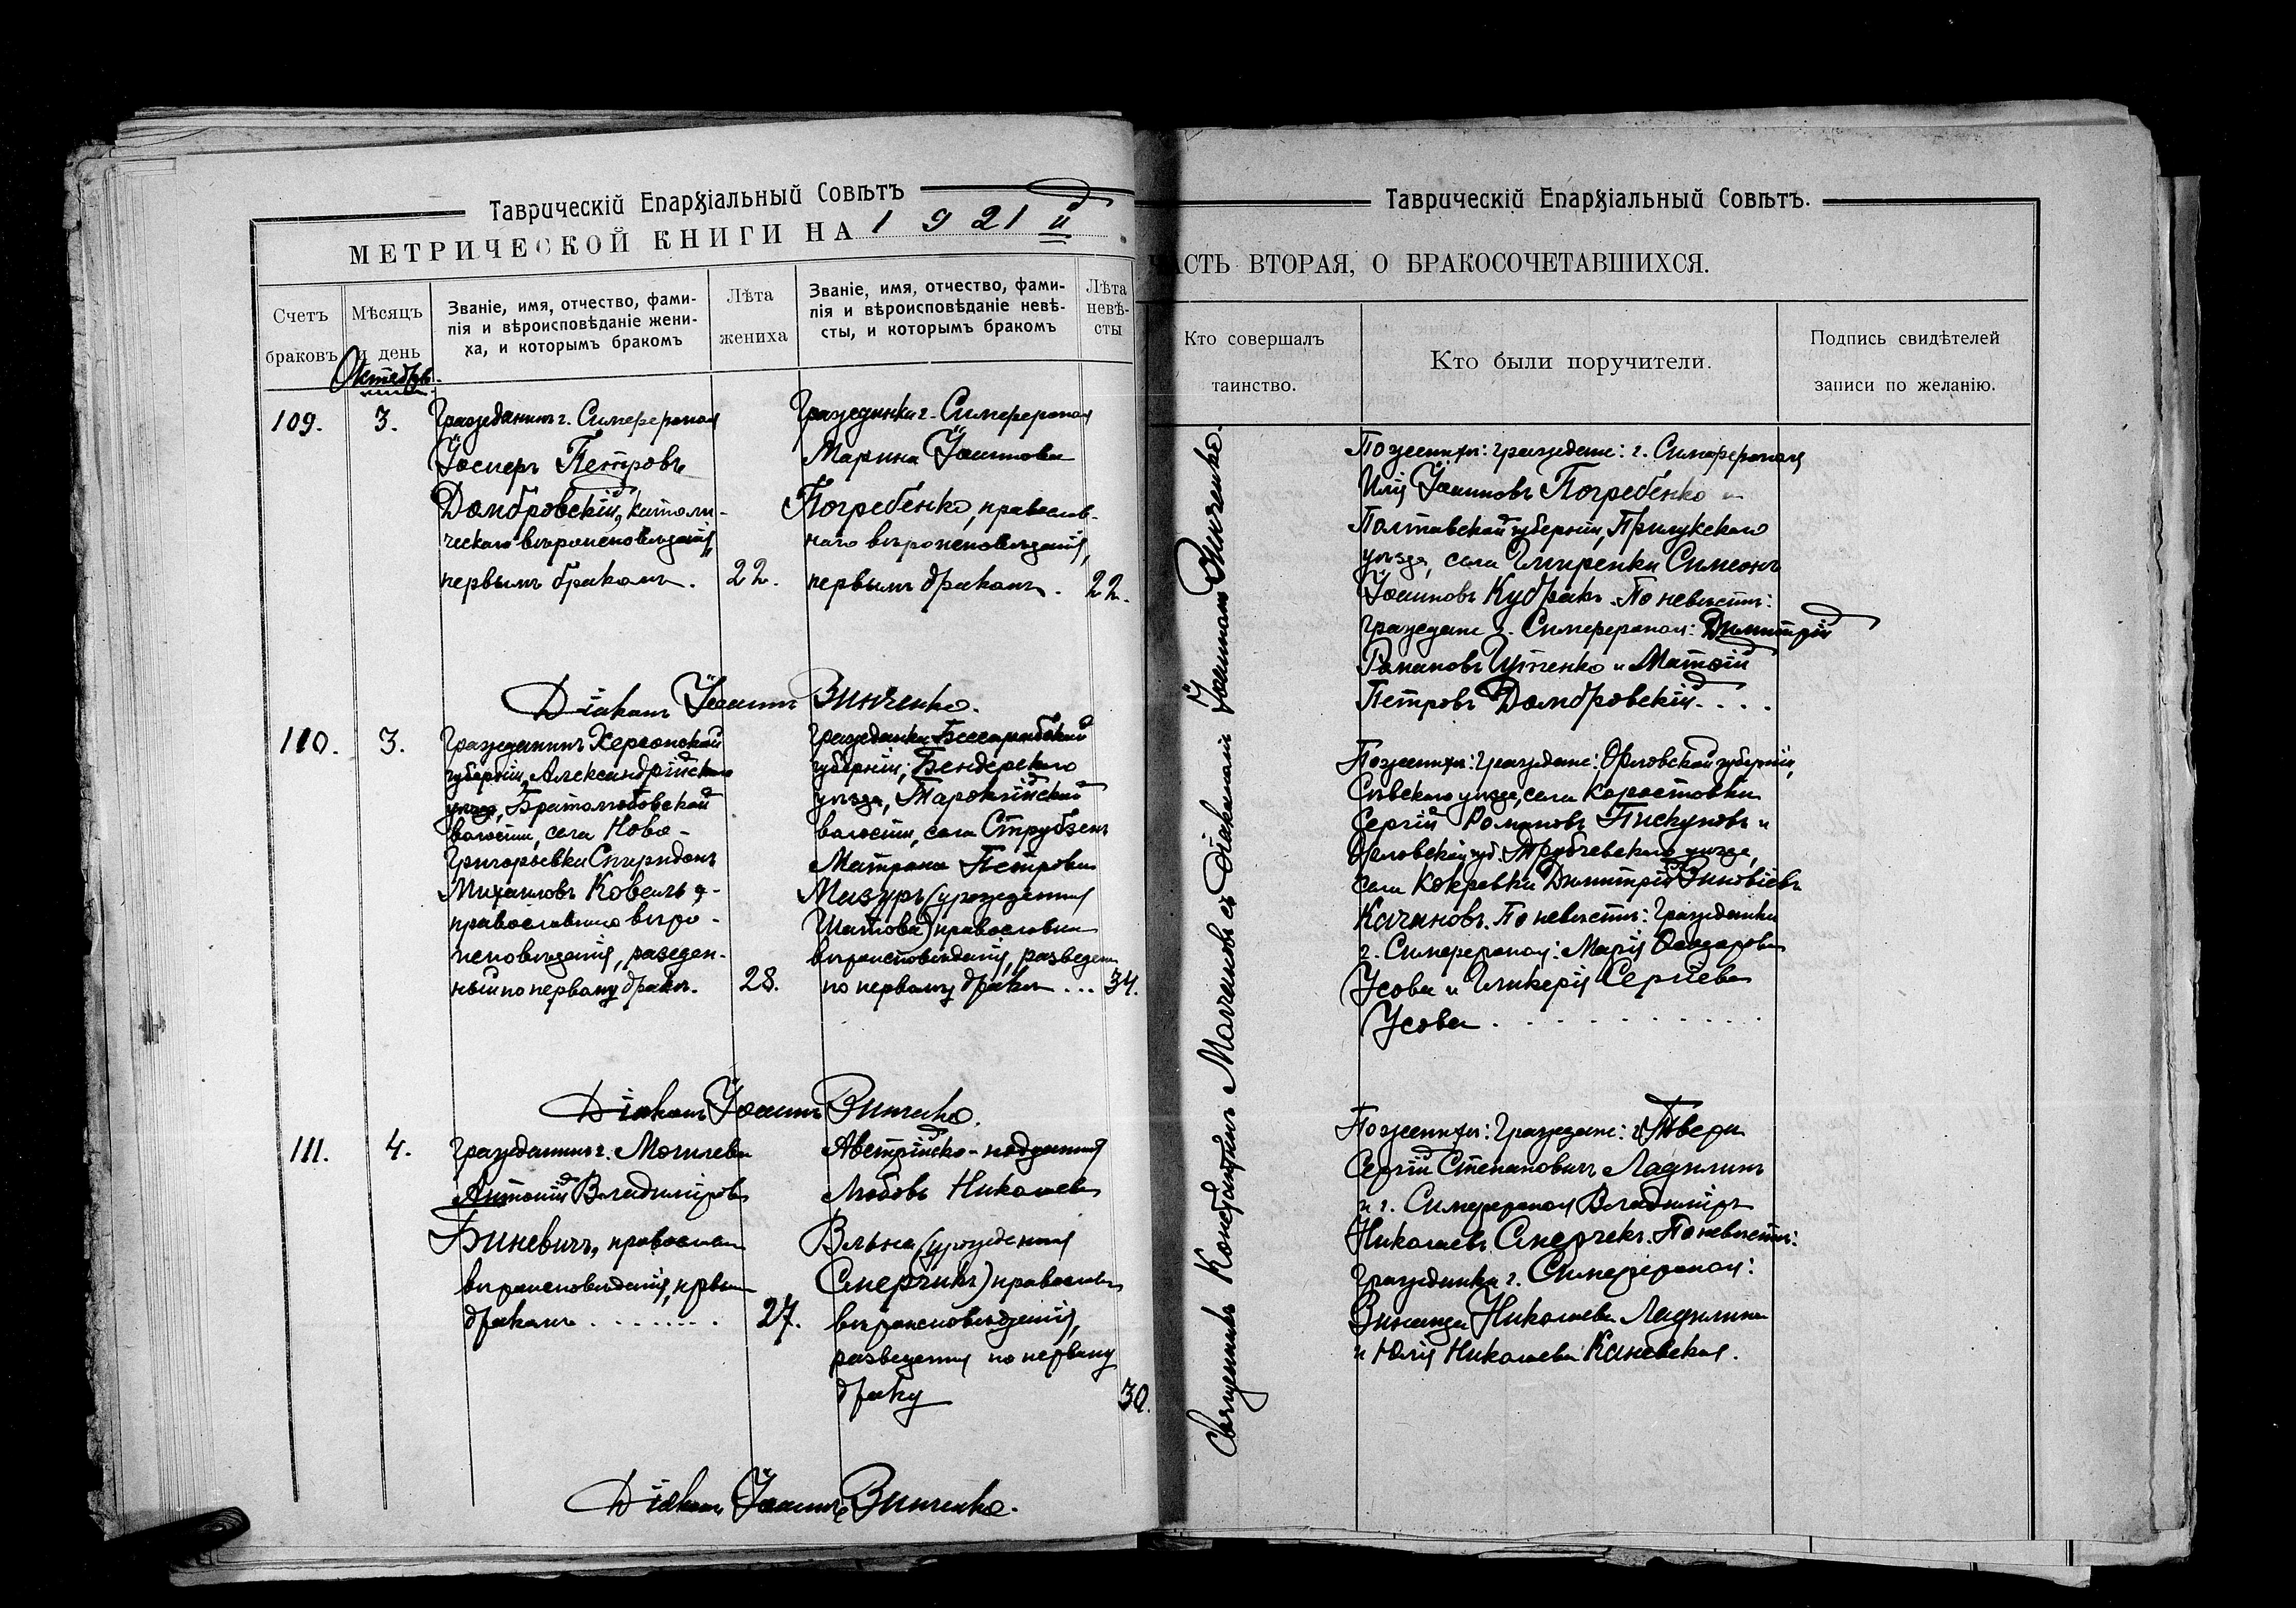 Таврическій Епархіальный Совѣтъ
МЕТРИЧЕСКОЙ КНИГИ НА 1921 й
Счетъ браковъ
Мѣсяцъ и день
Званіе, имя, отчество, фами-
лія и вѣроисповѣданіе жени-
ха, и которымъ бракомъ
Лѣта
жениха
Званіе, имя, отчество, фами-
лія и вѣроисповѣданіе невѣ-
сты, и которымъ бракомъ
Лѣта
невѣ-
сты
Октябрь
109.
3.
Гражданинъ г. Симферополя
Іосифъ Петровъ
Домбровскій, католи-
ческаго вѣроисповѣданія,
первымъ бракомъ.
22.
Гражданка г. Симферополя
Марина Іоаннова
Погребенко, православ-
наго вѣроисповѣданія,
первымъ бракомъ.
22.
Діаконъ Іоаннъ Винченко.
110.
3.
Гражданинъ Херсонской
губерніи, Александрійскаго
уѣзда, Братолюбовской
волости, села Ново-
Григорьевки Спиридонъ
Михаиловъ Коваль,
православнаго вѣро-
исповѣданія, разведен-
ный по первому браку.
28.
Гражданка Бессарабской
губерніи, Бендерскаго
уѣзда, Тараклійской
волости, села
Матрона Петрова
Мазуръ (урожденная
Шатова) православн
вѣроисповѣданія, разведен
по первому браку ...
34.
Діаконъ Іоаннъ Винченко.
111.
4.
Гражданинъ г. Могилева
Антоній Владиміровъ
Биневичъ, православн
вѣроисповѣданія, первым
бракомъ . . . . . . . .
27.
Австрійско-подданная
Любовь Николаева
Вльна (урожденная
Смерчекъ) православн
вѣроисповѣданія,
разведенная по первому
браку
30.
Діаконъ Іоаннъ Винченко.
Таврическій Епархіальный Совѣтъ.
ЧАСТЬ ВТОРАЯ, О БРАКОСОЧЕТАВШИХСЯ.
Кто совершалъ
таинство.
Кто были поручители.
Подпись свидѣтелей
записи по желанію.
Священникъ Константинъ Молчановъ съ Діакономъ Іоанномъ Винченко.
По женихѣ: граждане: г. Симферополя
Илія Іоанновъ Погребенко и
Полтавской губерніи, Прилукскаго
уѣзда, села Гмиренки Симеонъ
Іоанновъ Кубракъ. По невѣстѣ:
граждане г. Симферополя: Димитрій
Романовъ Гутченко и Матѳій
Петровъ Домбровскій. . . .
По женихѣ: граждане: Орловской губерніи,
Сѣвскаго уѣзда, села Коростовки
Сергій Романовъ Пискуновъ и
Орловской губ. Трубчевскаго уѣзда,
села Кокревки Димитрій Зиновіевъ
Качановъ. По невѣстѣ: Гражданки
г. Симферополя: Марія Ѳеодорова
Усова и Гликерія Сергіева
Усова . . . . . . . . . .
По женихѣ: Граждане: г. Твери
Сергій Степановичъ Ладилинъ
и г. Симферополя Владиміръ
Николаевъ Смерчекъ. По невѣстѣ:
Гражданки г. Симферополя:
Зинаида Николаева Ладилина
и Юлія Николаева Каневская.